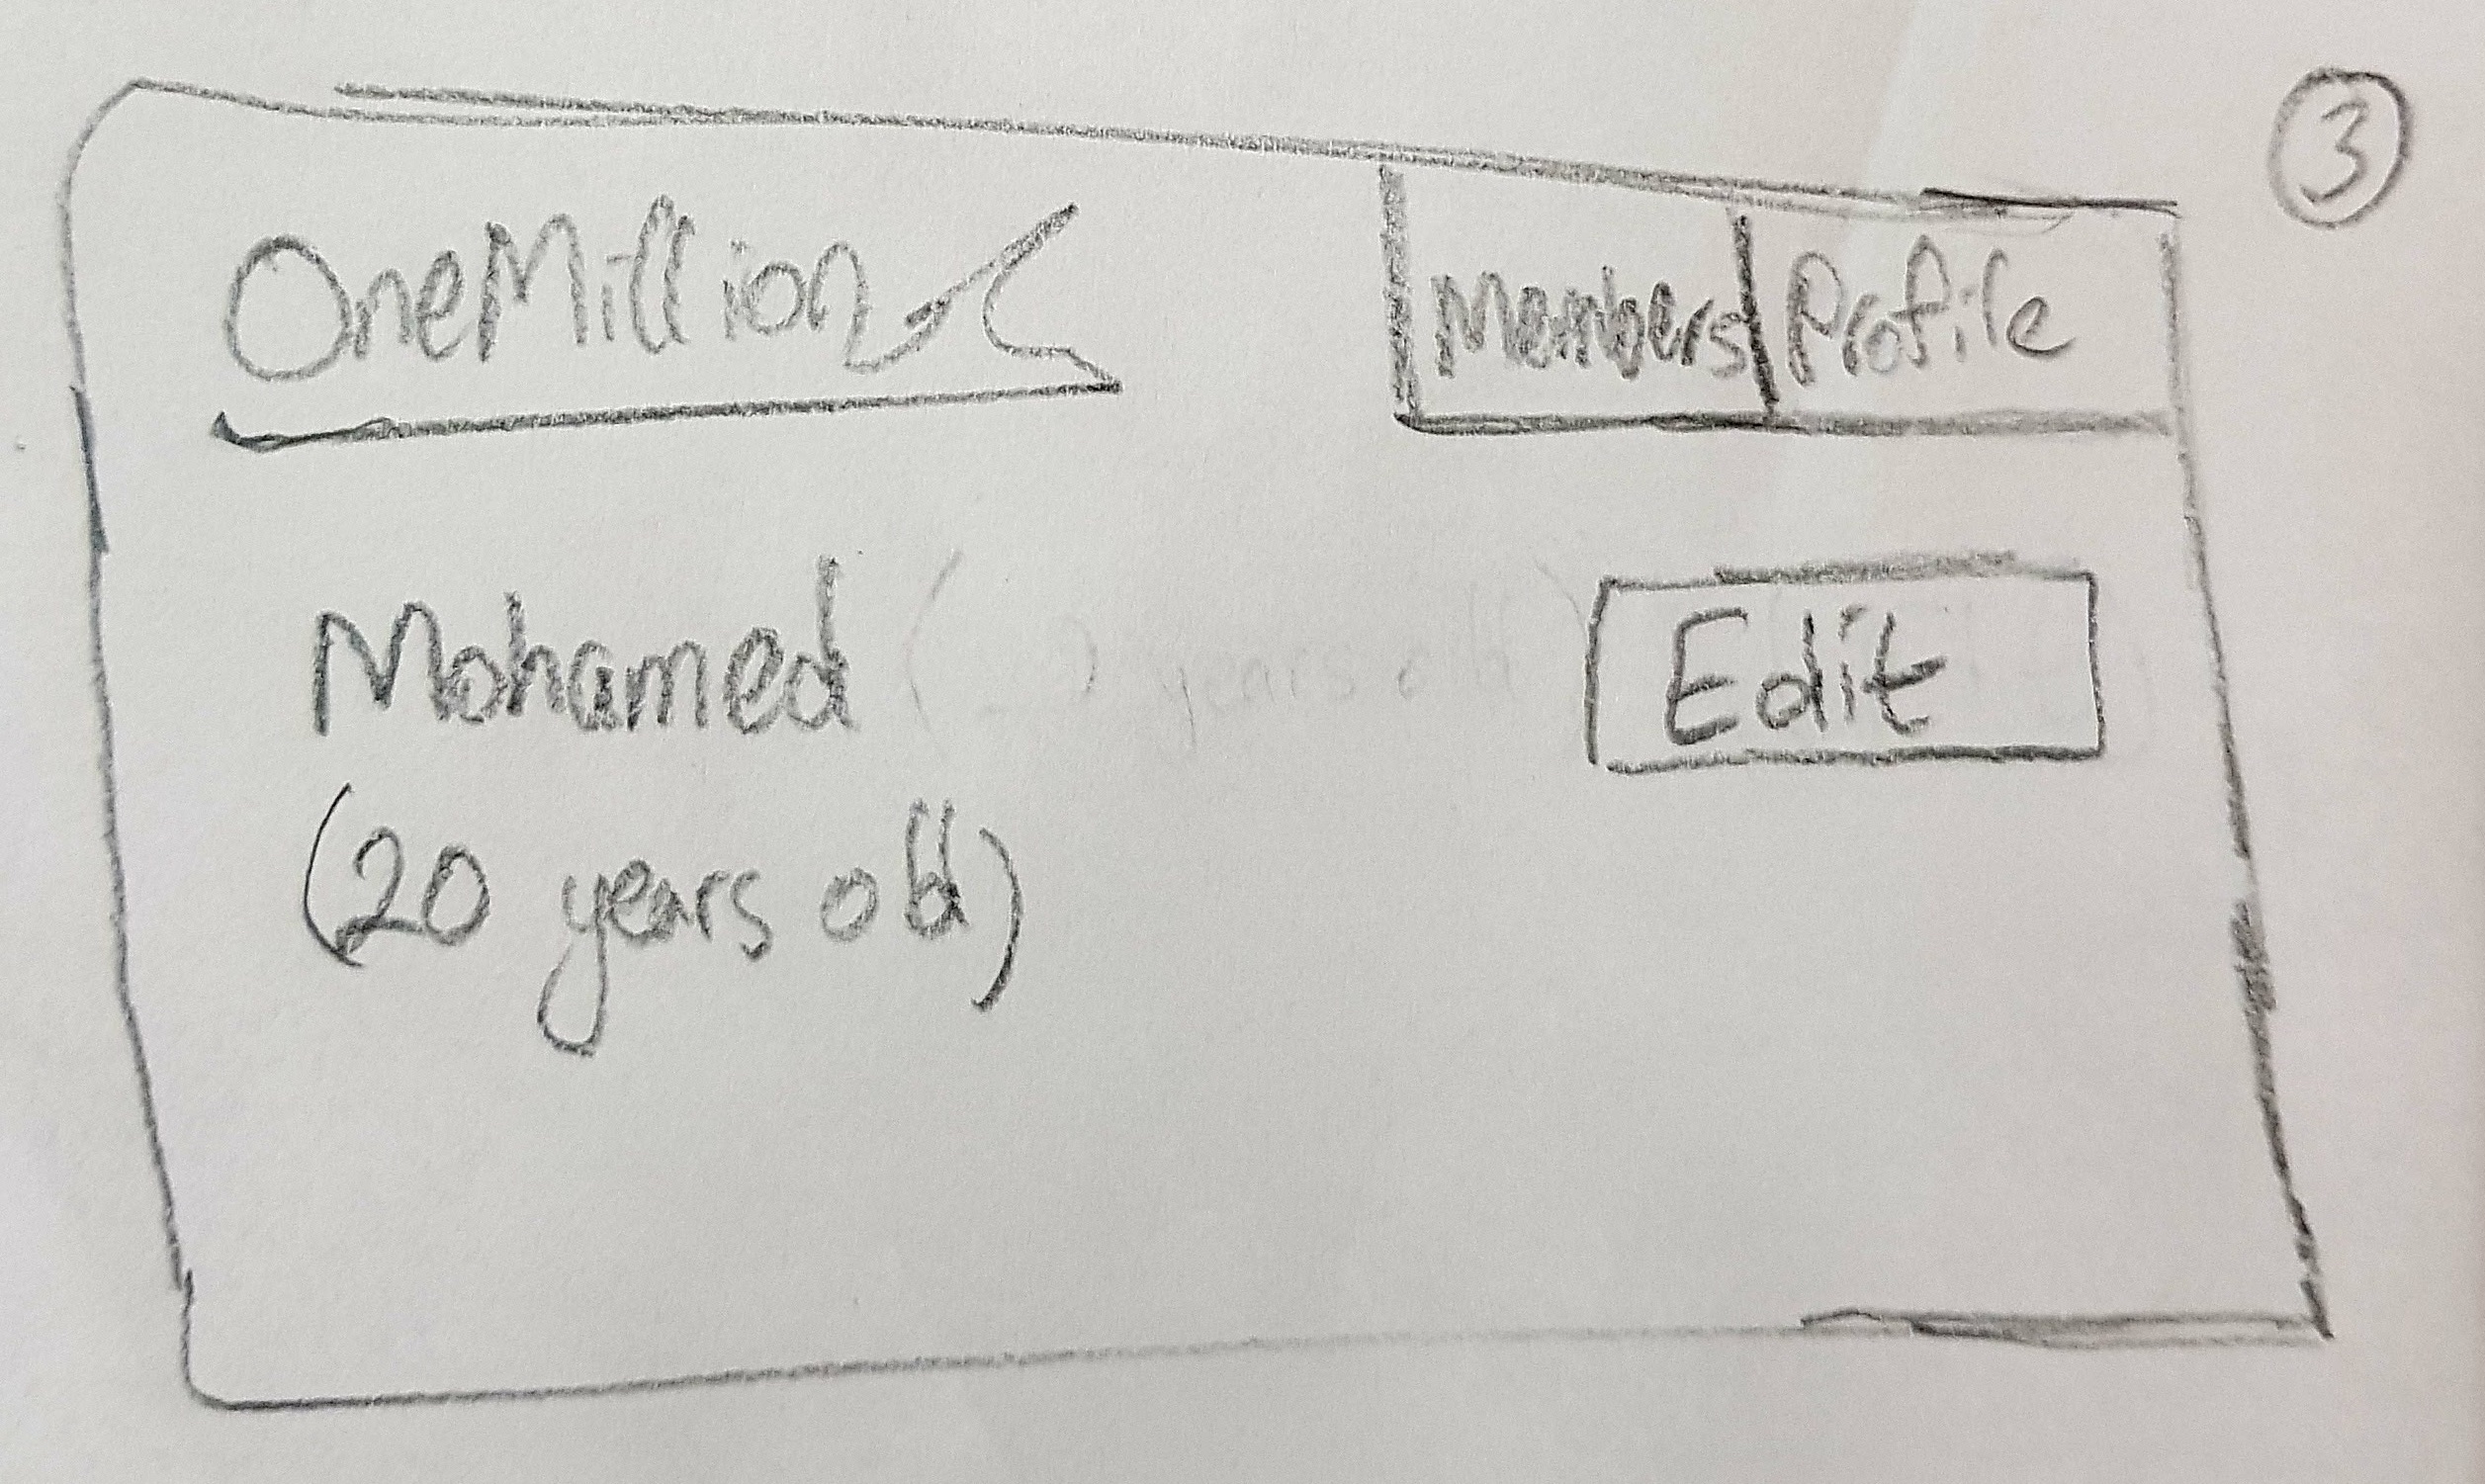 3
OneMillion
Members Profile
Mohamed
Edit
(20 years old)